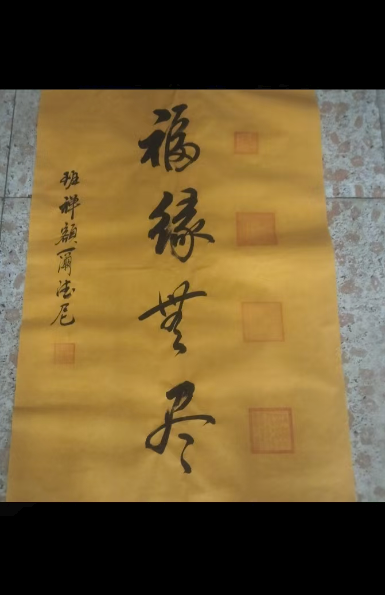 福緣無尽
班禅額爾德尼